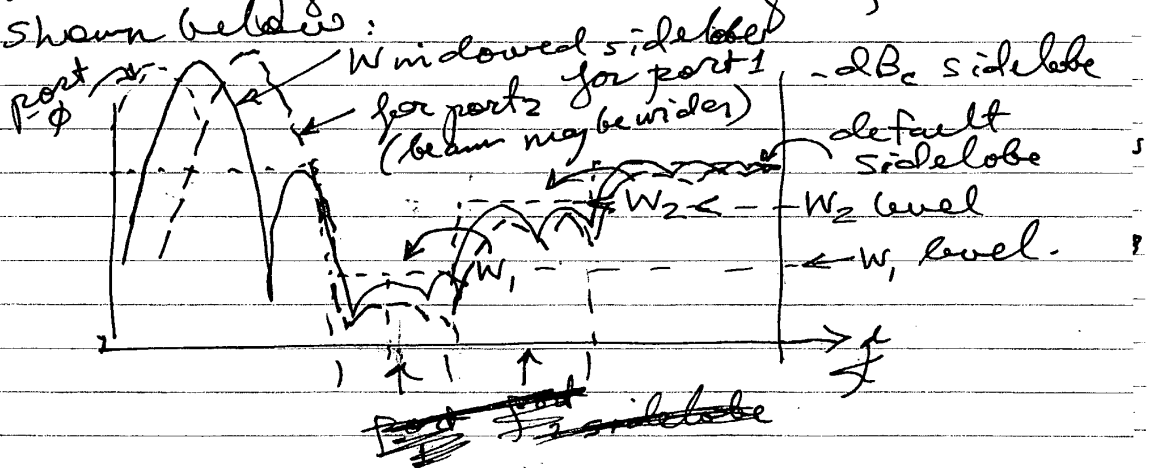 shown below:
Windowed sidelobe
for port 1
port
-φ
for port 2
(beam may be wider)
-dBc sidelobe
default
sidelobe
W2 <- - - W2 level
W1
W1 level.
f
port
1
port
2 sidelobe